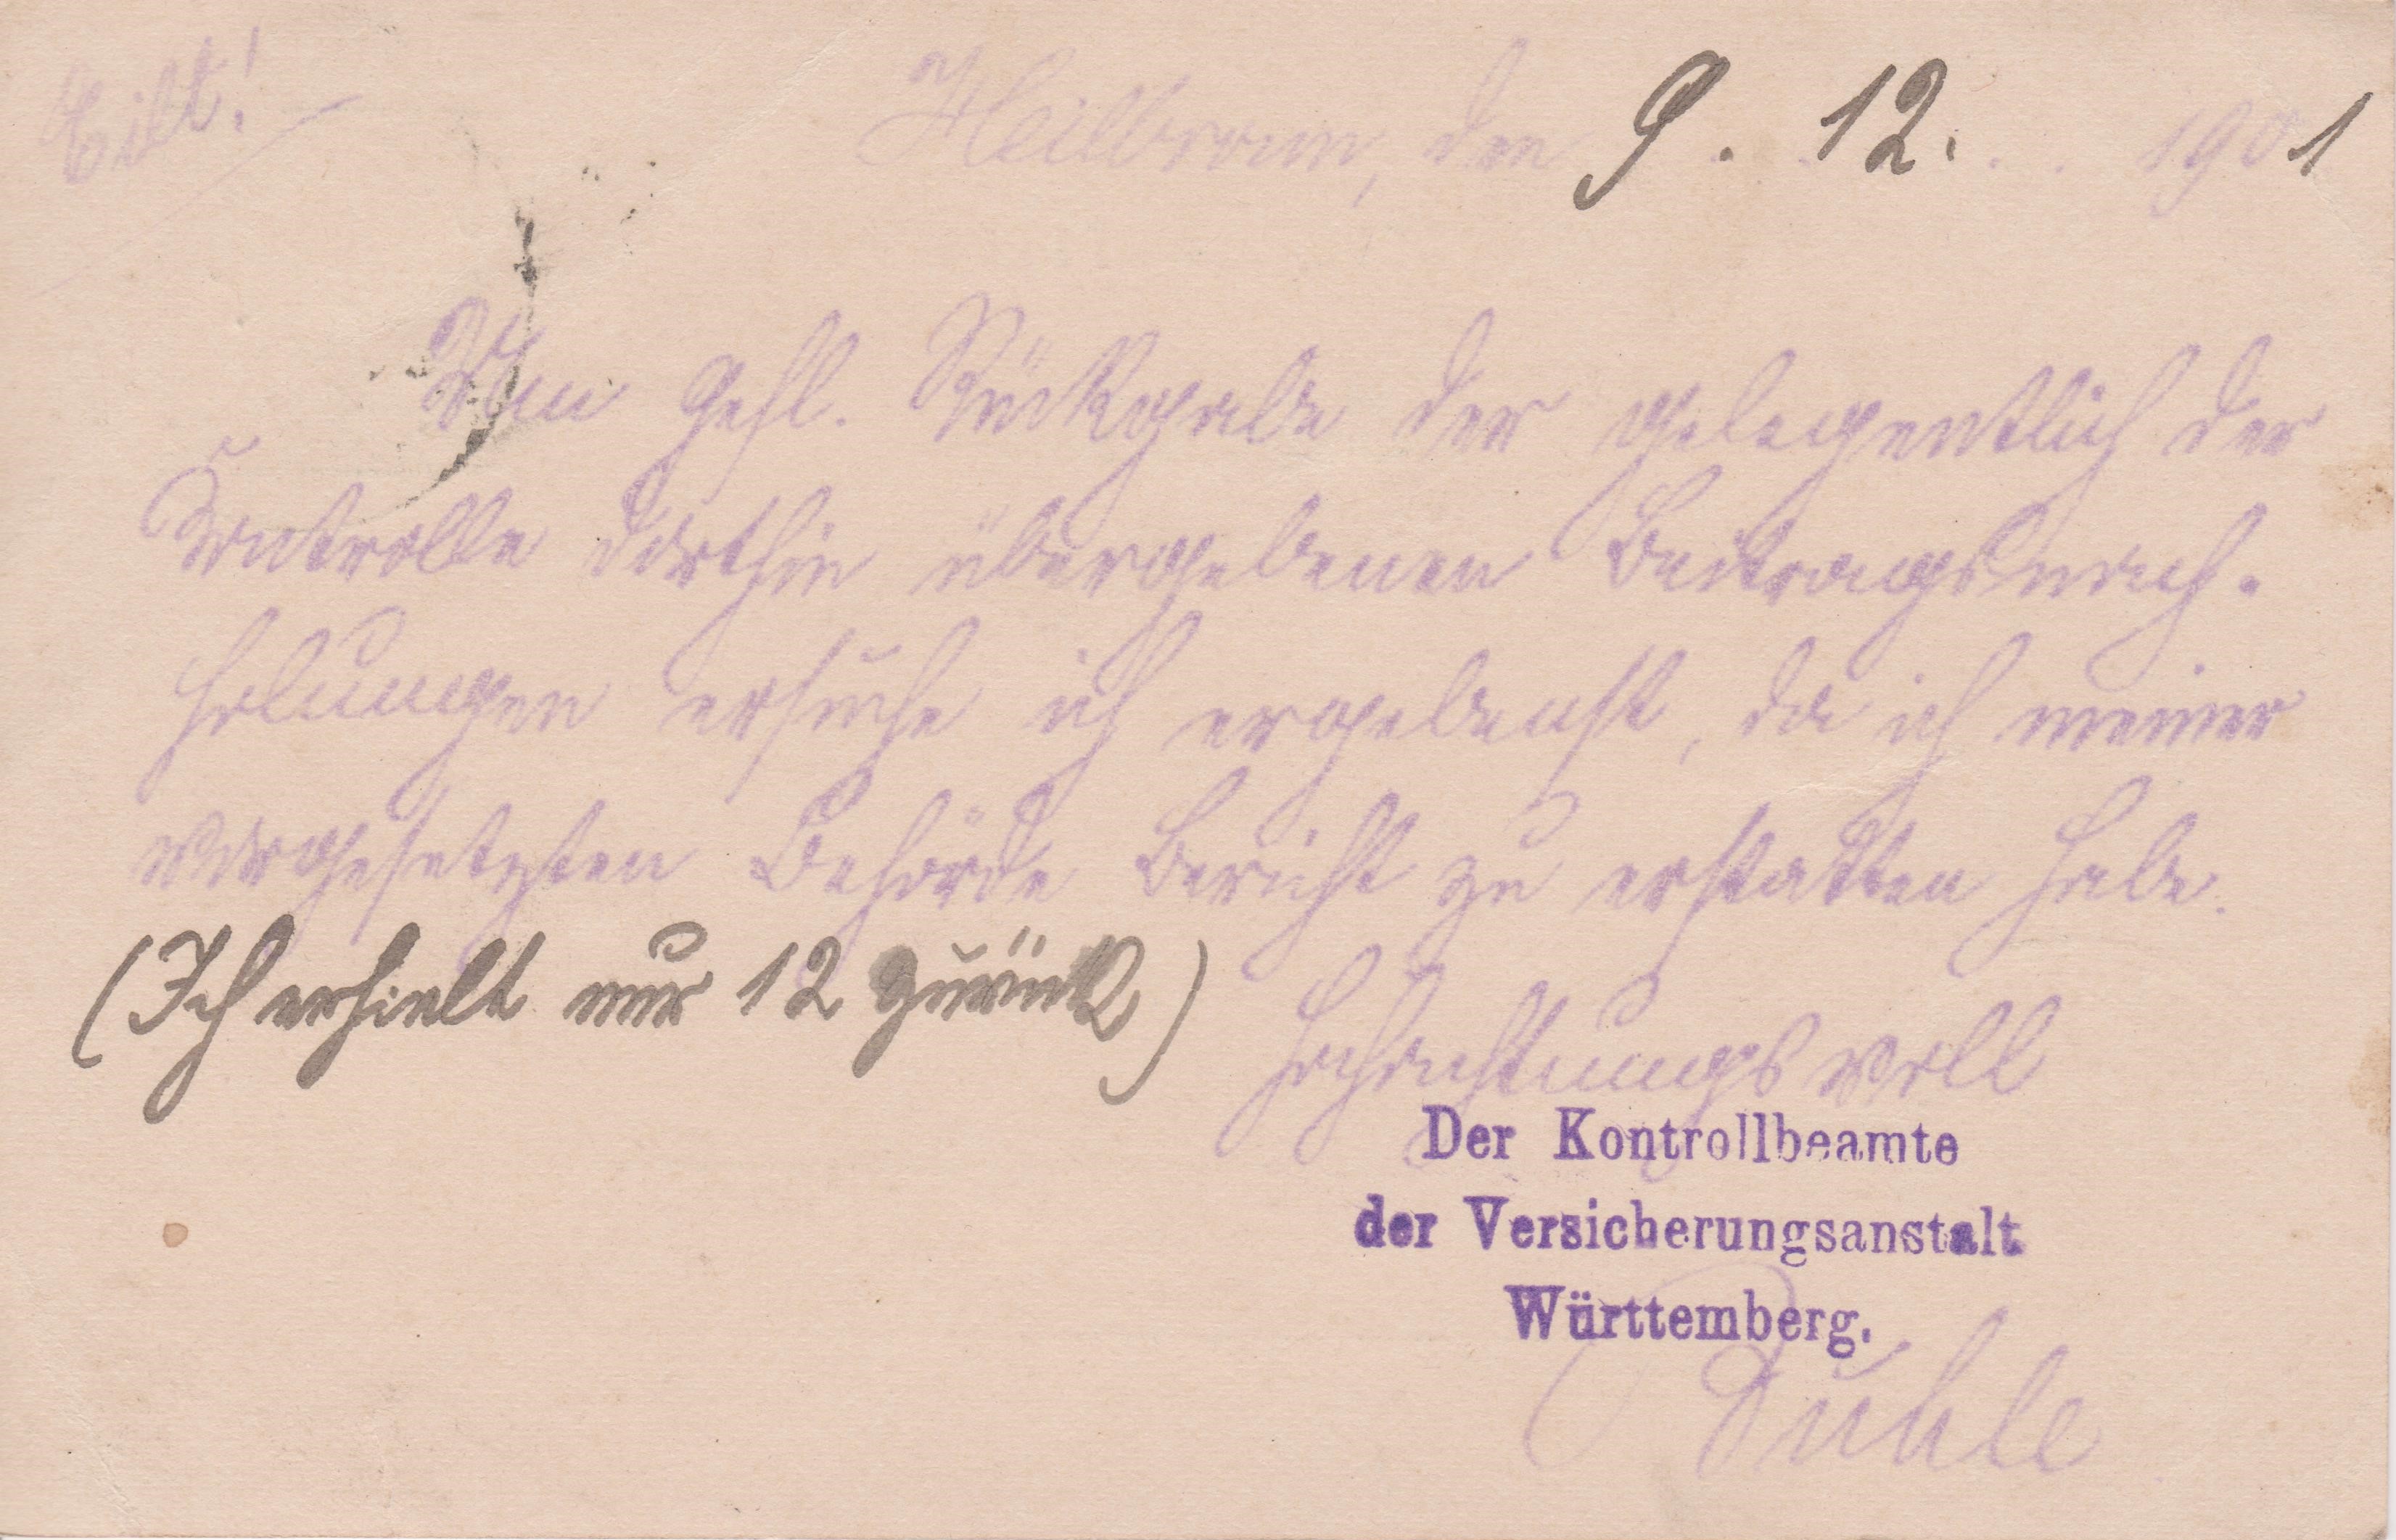 Eilt!
Heilbronn, den 9. 12. 1901
Um gefl. Rückgabe der gelegentlich der
Kontrolle dorthin übergebenen Beitragsnach-
holungen ersuche ich ergebenst, da ich meiner
vorgesetzten Behörde Bericht zu erstatten habe.
(Ich erhielt nur 12 zurück)
Hochachtungsvoll
Der Kontrollbeamte
der Versicherungsanstalt
Württemberg.